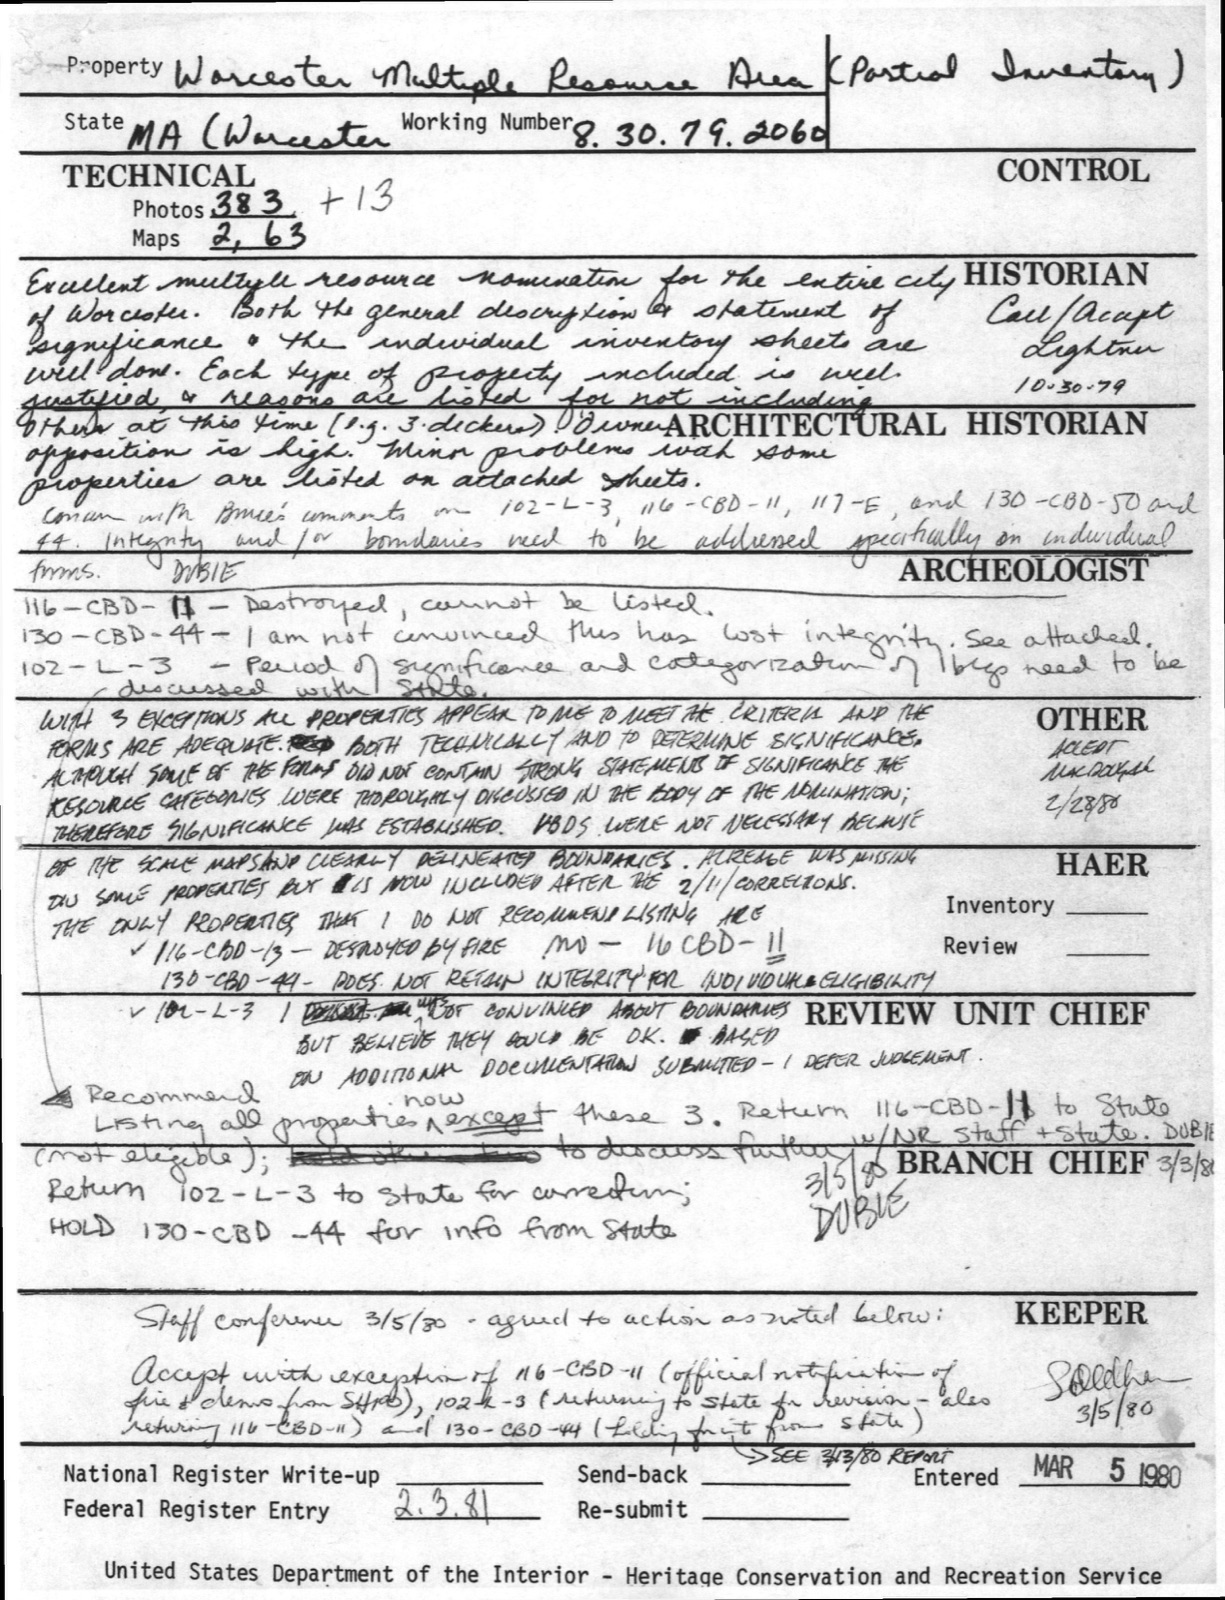 Property Worcester Multiple Resource Area (Partial Inventory)
State MA (Worcester Working Number 8.30.79.2060
TECHNICAL CONTROL
Photos 383 +13
Maps 2, 63
Excellent multiple resource nomination for the entire city HISTORIAN
of Worcester. Both the general description & statement of Call/Accept
significance & the individual inventory sheets are Lightner
well done. Each type of property included is well 10-30-79
justified & reasons are listed for not including
others at this time (e.g. 3-deckers). Owner ARCHITECTURAL HISTORIAN
opposition is high. Minor problems with some
properties are listed on attached sheets.
Concur with Bruce's comments on 102-L-3, 116-CBD-11, 117-E, and 130-CBD-50 and
44. Integrity and/or boundaries need to be addressed specifically on individual
forms. DUBIE ARCHEOLOGIST
116-CBD-11 - Destroyed, cannot be listed.
130-CBD-44 - I am not convinced this has lost integrity. See attached.
102-L-3 - Period of significance and categorization of bldgs need to be
discussed with State.
WITH 3 EXCEPTIONS ALL PROPERTIES APPEAR TO ME TO MEET THE CRITERIA AND THE OTHER
FORMS ARE ADEQUATE. BOTH TECHNICALLY AND TO DETERMINE SIGNIFICANCE. ACCEPT
ALTHOUGH SOME OF THE FORMS DID NOT CONTAIN STRONG STATEMENTS OF SIGNIFICANCE THE MACDOUGAL
RESOURCE CATEGORIES WERE THOROUGHLY DISCUSSED IN THE BODY OF THE NOMINATION; 2/28/80
THEREFORE SIGNIFICANCE WAS ESTABLISHED. VBDS WERE NOT NECESSARY BECAUSE
OF THE SCALE MAPS AND CLEARLY DELINEATED BOUNDARIES. ACREAGE WAS MISSING HAER
ON SOME PROPERTIES BUT IS NOW INCLUDED AFTER THE 2/11/ CORRECTIONS.
THE ONLY PROPERTIES THAT I DO NOT RECOMMEND LISTING ARE Inventory
✓ 116-CBD-13 - DESTROYED BY FIRE NO - 16 CBD-11 Review
130-CBD-44 - DOES NOT RETAIN INTEGRITY FOR INDIVIDUAL ELIGIBILITY
✓ 102-L-3 I was NOT CONVINCED ABOUT BOUNDARIES REVIEW UNIT CHIEF
BUT BELIEVE THEY COULD BE O.K. BASED
ON ADDITIONAL DOCUMENTATION SUBMITTED - I DEFER JUDGEMENT.
Recommend
Listing all properties now except these 3. Return 116-CBD-11 to State
(not eligible); to discuss further w/NR Staff + State. DUBIE
BRANCH CHIEF 3/3/80
Return 102-L-3 to State for correction; 3/5/80
HOLD 130-CBD-44 for info from State DUBIE
Staff conference 3/5/80 - agreed to action as noted below: KEEPER
Accept with exception of 116-CBD-11 (official notification of
fire & demo from SHPO), 102-L-3 (returning to State for revision - also 3/5/80
returning 116-CBD-11) and 130-CBD-44 (holding for info from State)
SEE 3/13/80 REPORT
National Register Write-up Send-back Entered MAR 5 1980
Federal Register Entry 2.3.81 Re-submit
United States Department of the Interior - Heritage Conservation and Recreation Service